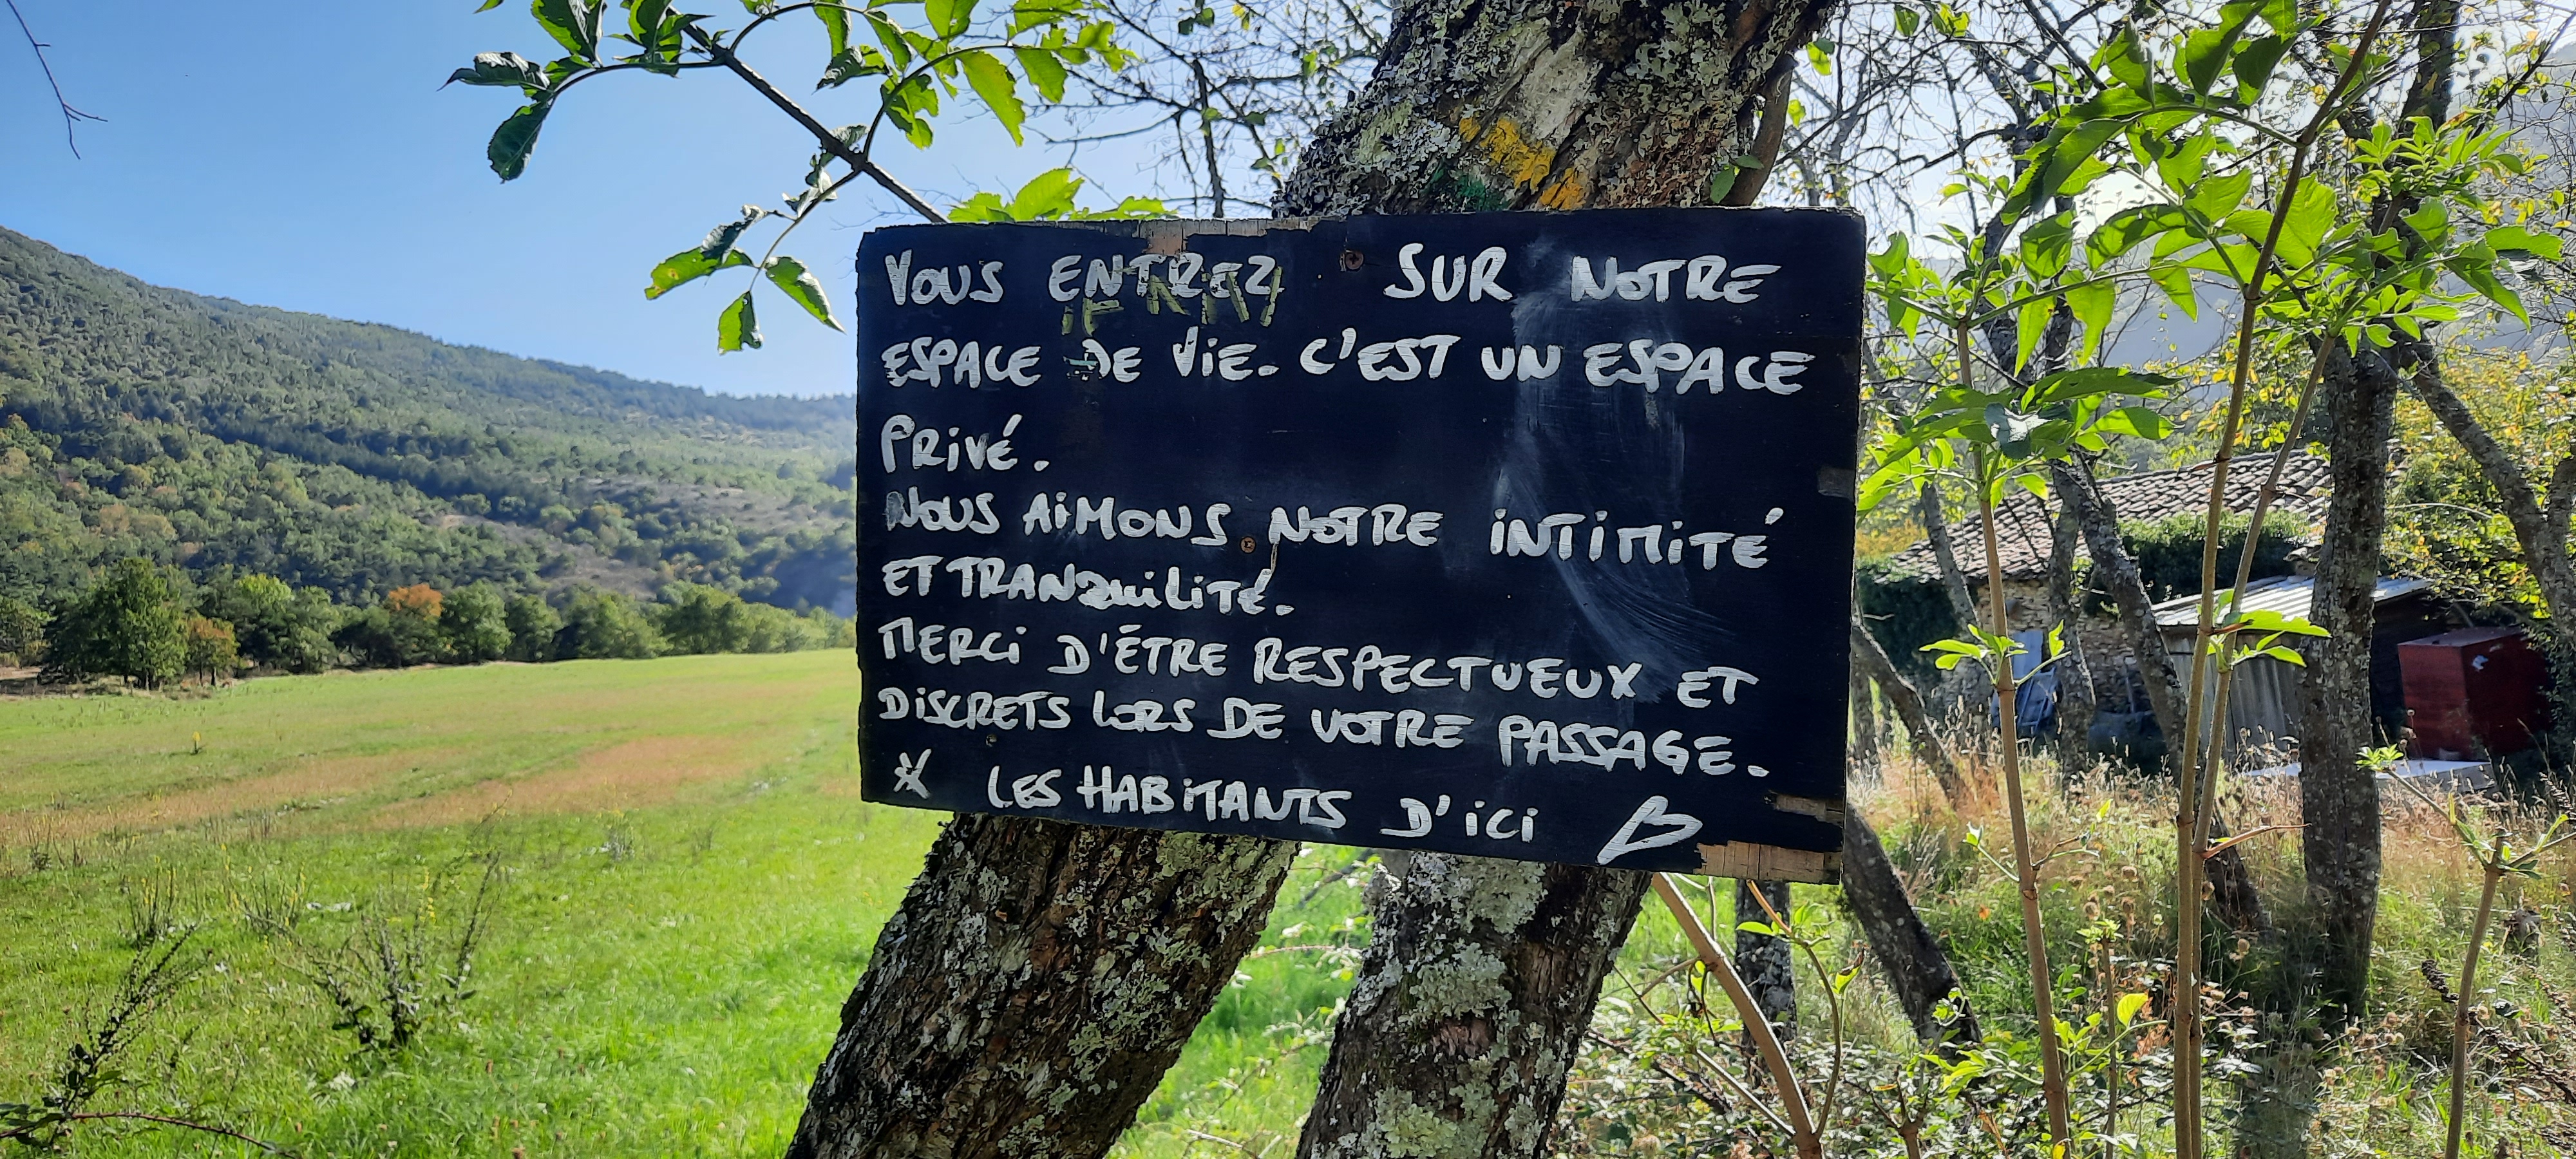 VOUS ENTREZ SUR NOTRE
ESPACE DE ViE. C'EST UN ESPACE
PRiVÉ.
NOUS AiMONS NOTRE iNTiMiTÉ
ET TRANQuiLiTÉ.
MERCi D'ÊTRE RESPECTUEUX ET
DiSCRETS LORS DE VOTRE PASSAGE.
LES HABiTANTS D'iCi